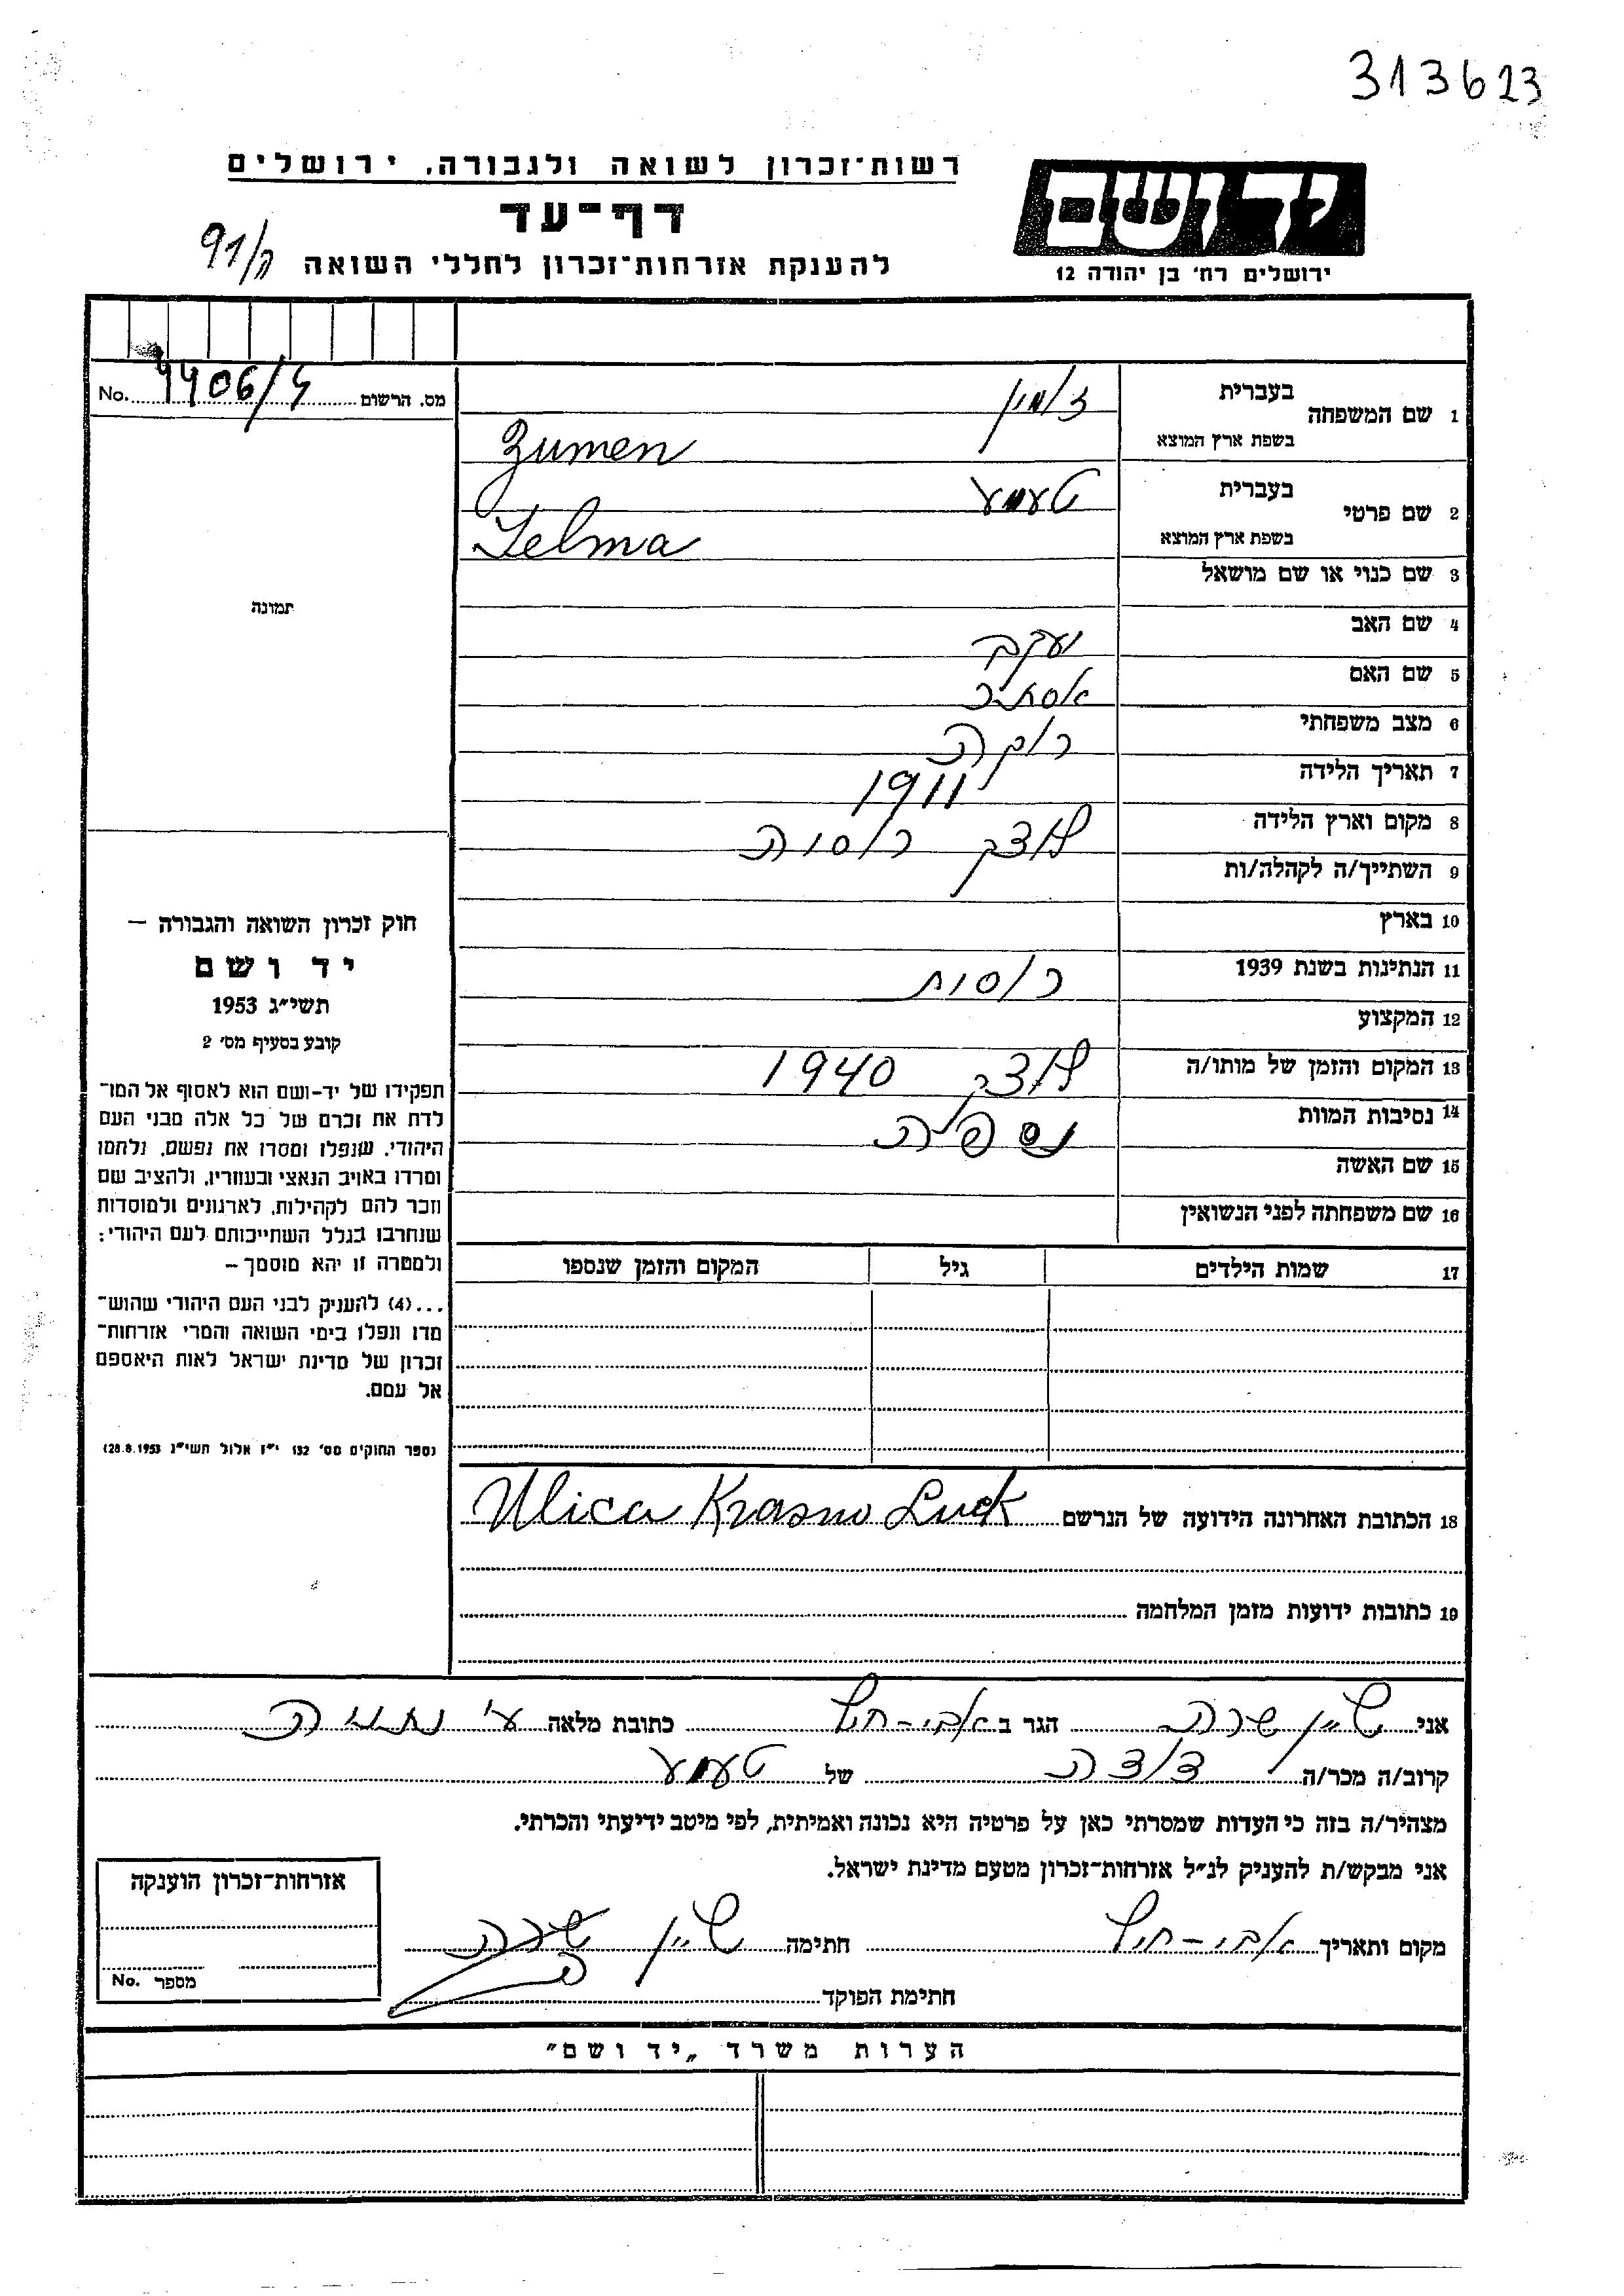 313623
רשות-זכרון לשואה ולגבורה, ירושלים
דף-עד
להענקת אזרחות-זכרון לחללי השואה
91/ק
יד ושם
ירושלים רח' בן יהודה 12
מס. הרשום 9406/4 No.
1 שם המשפחה
בעברית זומין
בשפת ארץ המוצא Zumen
2 שם פרטי
בעברית טעמע
בשפת ארץ המוצא Telma
3 שם כנוי או שם מושאל
4 שם האב יעקב
5 שם האם אסתיר
6 מצב משפחתי רוקה
7 תאריך הלידה 1911
8 מקום וארץ הלידה לוצק רוסיה
9 השתייך/ה לקהלה/ות
10 בארץ
11 הנתינות בשנת 1939 רוסית
12 המקצוע
13 המקום והזמן של מותו/ה לוצק 1940
14 נסיבות המוות נספית
15 שם האשה
16 שם משפחתה לפני הנשואין
17 שמות הילדים גיל המקום והזמן שנספו
תמונה
חוק זכרון השואה והגבורה –
יד ושם
תשי״ג 1953
קובע בסעיף מס' 2
תפקידו של יד-ושם הוא לאסוף אל המו־
לדת את זכרם של כל אלה מבני העם
היהודי, שנפלו ומסרו את נפשם, נלחמו
ומרדו באויב הנאצי ובעוזריו, ולהציב שם
וזכר להם לקהילות, לארגונים ולמוסדות
שנחרבו בגלל השתייכותם לעם היהודי;
ולמטרה זו יהא מוסמך –
...(4) להעניק לבני העם היהודי שהוש־
מדו ונפלו בימי השואה והמרי אזרחות־
זכרון של מדינת ישראל לאות היאספם
אל עמם.
(ספר החוקים מס' 132 י״ז אלול תשי״ג 28.8.1953)
18 הכתובת האחרונה הידועה של הנרשם Ulica Krasno Luck
19 כתובות ידועות מזמן המלחמה
אני שיין שרה הגר ב אבי-חיל כתובת מלאה ע״י נתניה
קרוב/ה מכר/ה דודה של טעמע
מצהיר/ה בזה כי העדות שמסרתי כאן על פרטיה היא נכונה ואמיתית, לפי מיטב ידיעתי והכרתי.
אני מבקש/ת להעניק לנ״ל אזרחות-זכרון מטעם מדינת ישראל.
מקום ותאריך אבי-חיל חתימה שיין שרה
חתימת הפוקד
אזרחות-זכרון הוענקה
מספר No.
הערות משרד „יד ושם״